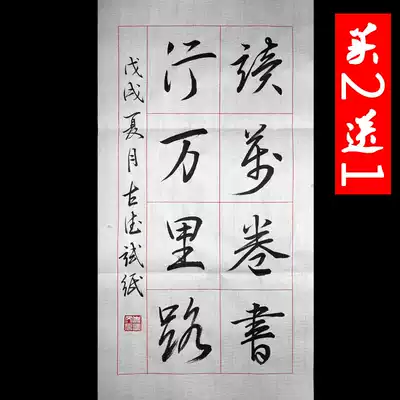 讀萬卷書
行万里路
戊戌夏月 古 試紙
买2送1